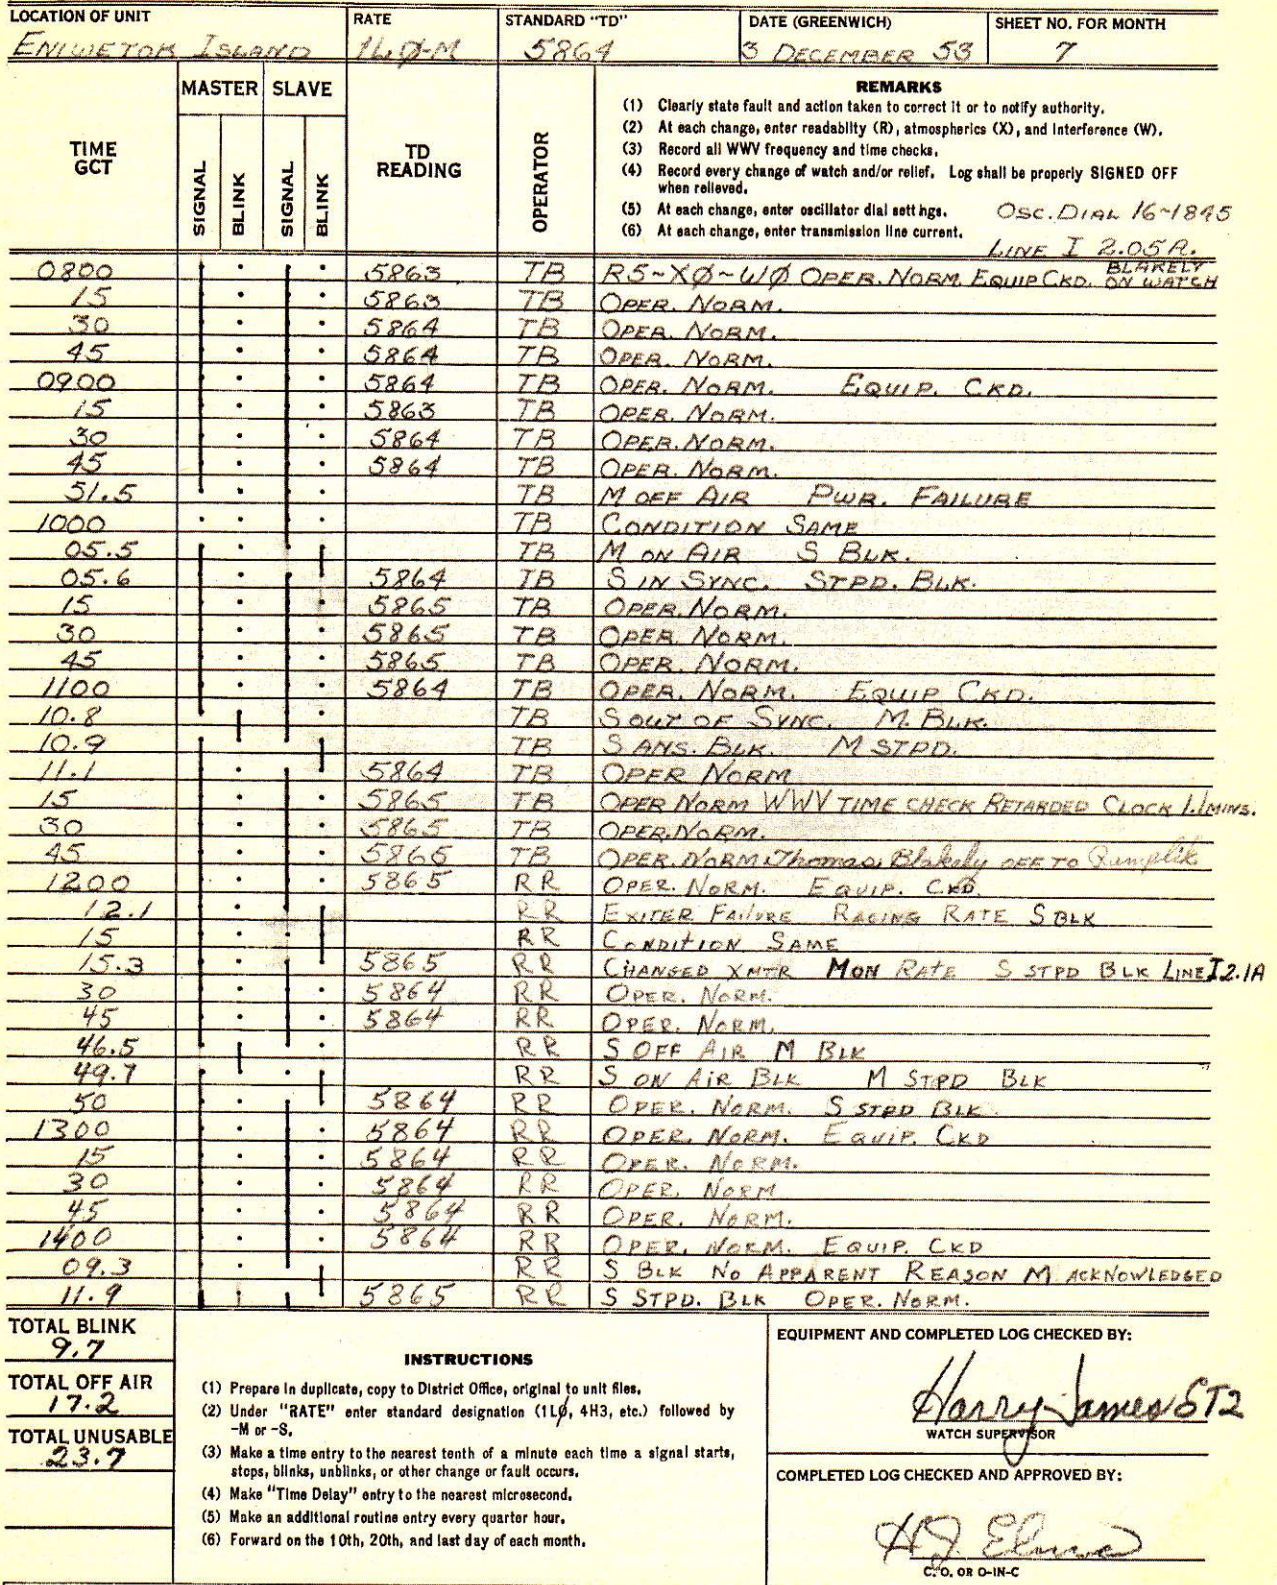 LOCATION OF UNIT RATE STANDARD "TD" DATE (GREENWICH) SHEET NO. FOR MONTH
ENIWETOK ISLAND 1LØ-M 5864 3 DECEMBER 53 7
MASTER SLAVE
TIME GCT SIGNAL BLINK SIGNAL BLINK TD READING OPERATOR
REMARKS
(1) Clearly state fault and action taken to correct it or to notify authority.
(2) At each change, enter readability (R), atmospherics (X), and Interference (W).
(3) Record all WWV frequency and time checks.
(4) Record every change of watch and/or relief. Log shall be properly SIGNED OFF
when relieved.
(5) At each change, enter oscillator dial settings. OSC. DIAL 16~1845
(6) At each change, enter transmission line current. LINE I 2.05A.
0800 5863 TB R5~XØ~WØ OPER. NORM. EQUIP CKD. BLAKELY ON WATCH
15 5863 TB OPER. NORM.
30 5864 TB OPER. NORM.
45 5864 TB OPER. NORM.
0900 5864 TB OPER. NORM. EQUIP. CKD.
15 5863 TB OPER. NORM.
30 5864 TB OPER. NORM.
45 5864 TB OPER. NORM.
51.5 TB M OFF AIR PWR. FAILURE
1000 TB CONDITION SAME
05.5 TB M ON AIR S BLK.
05.6 5864 TB S IN SYNC. STPD. BLK.
15 5865 TB OPER. NORM.
30 5865 TB OPER. NORM.
45 5865 TB OPER. NORM.
1100 5864 TB OPER. NORM. EQUIP CKD.
10.8 TB S OUT OF SYNC. M. BLK.
10.9 TB S ANS. BLK. M STPD.
11.1 5864 TB OPER NORM
15 5865 TB OPER NORM WWV TIME CHECK RETARDED CLOCK 1.1 MINS.
30 5865 TB OPER. NORM.
45 5865 TB OPER. NORM Thomas Blakely OFF TO
1200 5865 RR OPER. NORM. EQUIP. CKD.
12.1 RR EXITER FAILURE RACING RATE S BLK
15 RR CONDITION SAME
15.3 5865 RR CHANGED XMTR M ON RATE S STPD BLK LINE I 2.1A
30 5864 RR OPER. NORM.
45 5864 RR OPER. NORM.
46.5 RR S OFF AIR M BLK
49.7 RR S ON AIR BLK M STPD BLK
50 5864 RR OPER. NORM. S STPD BLK
1300 5864 RR OPER. NORM. EQUIP. CKD
15 5864 RR OPER. NORM.
30 5864 RR OPER. NORM
45 5864 RR OPER. NORM.
1400 5864 RR OPER. NORM. EQUIP. CKD
09.3 RR S BLK NO APPARENT REASON M ACKNOWLEDGED
11.9 5865 RR S STPD. BLK OPER. NORM.
TOTAL BLINK
9.7
TOTAL OFF AIR
17.2
TOTAL UNUSABLE
23.7
INSTRUCTIONS
(1) Prepare in duplicate, copy to District Office, original to unit files.
(2) Under "RATE" enter standard designation (1LØ, 4H3, etc.) followed by
-M or -S.
(3) Make a time entry to the nearest tenth of a minute each time a signal starts,
stops, blinks, unblinks, or other change or fault occurs.
(4) Make "Time Delay" entry to the nearest microsecond.
(5) Make an additional routine entry every quarter hour.
(6) Forward on the 10th, 20th, and last day of each month.
EQUIPMENT AND COMPLETED LOG CHECKED BY:
Harry James ET2
WATCH SUPERVISOR
COMPLETED LOG CHECKED AND APPROVED BY:
C. O. OR O-IN-C